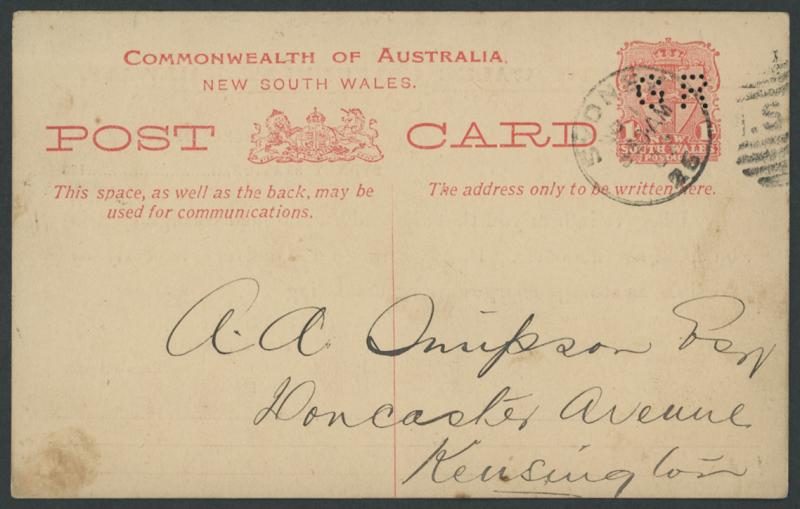 COMMONWEALTH OF AUSTRALIA.
NEW SOUTH WALES.
POST CARD
This space, as well as the back, may be
used for communications.
The address only to be written here.
1 N.S.W. 1
SOUTH WALES
POSTAGE
SYDNEY
25
A. A. Simpson Esq
Doncaster Avenue
Kensington